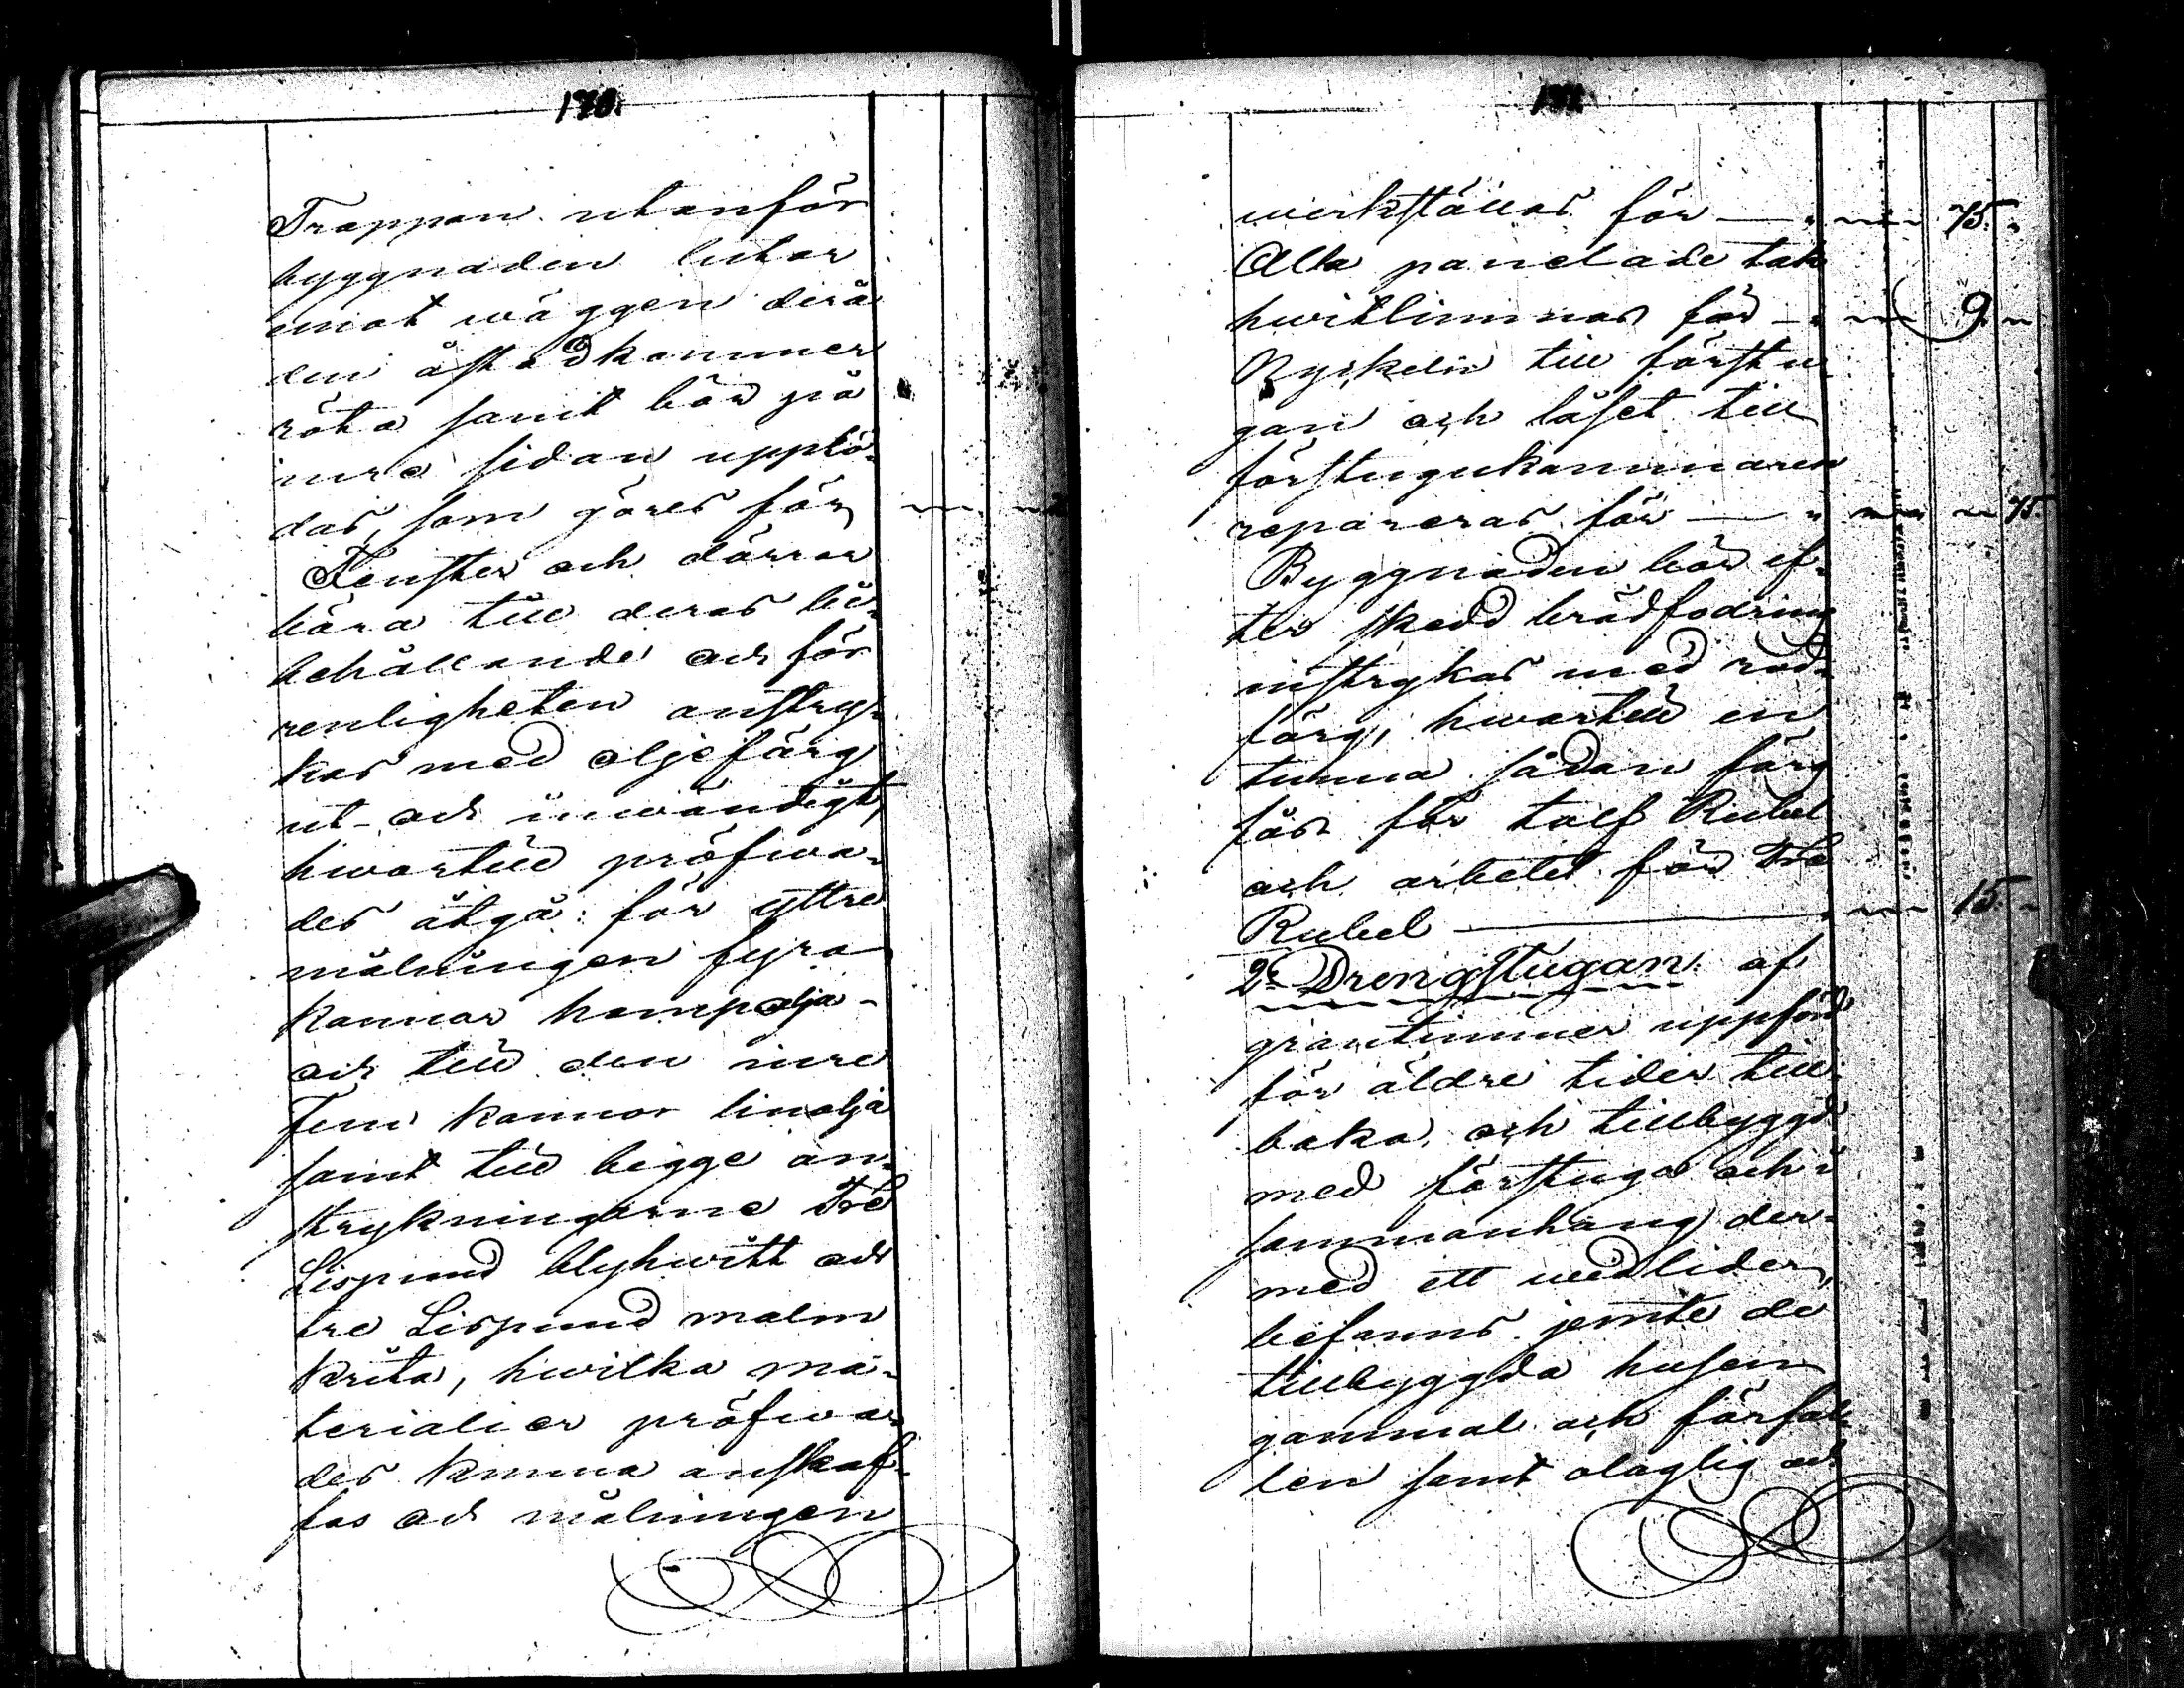 170.
Trappan utanför
byggnaden lutar
emot wäggen derå
den åstadkommer
röta samt bör på
inre sidan upplö-
das, som göres för
Fenster och dörrar
böra till deras bi-
behållande och för
renligheten anstry-
kas med oljefärg
ut- och inwändigt,
hwartill pröfwa-
des åtgå: för yttre
målningen fyra
kannor hampolja
och till den inre
Fem kannor linolja
samt till begge an-
strykningarne Tre
Lispund blyhwitt och
tre Lispund malm
krita, hwilka ma-
terialier pröfwa-
des kunna anskaf-
fas och målningen
werkställas för — " 75. "
Alla panelade tak
hwitlimmas för — " 9. "
Nyckeln till förstu-
gan och låset till
förstugukammaren
repareras för — " 75.
Byggnaden bör ef-
ter skedd brädfodring
instrykas med röd-
färg, hwartill en
tunna sådan färg
fås för tolf Rubel
och arbetet för Tre
Rubel — 15. "
2. Drengstugan af
grantimmer uppförd
för äldre tider till-
baka, och tillbyggd
med förstuga och i
sammanhang der-
med ett wedlider,
befanns jemte de
tillbyggda husen
gammal och förfal-
len samt olaglig och